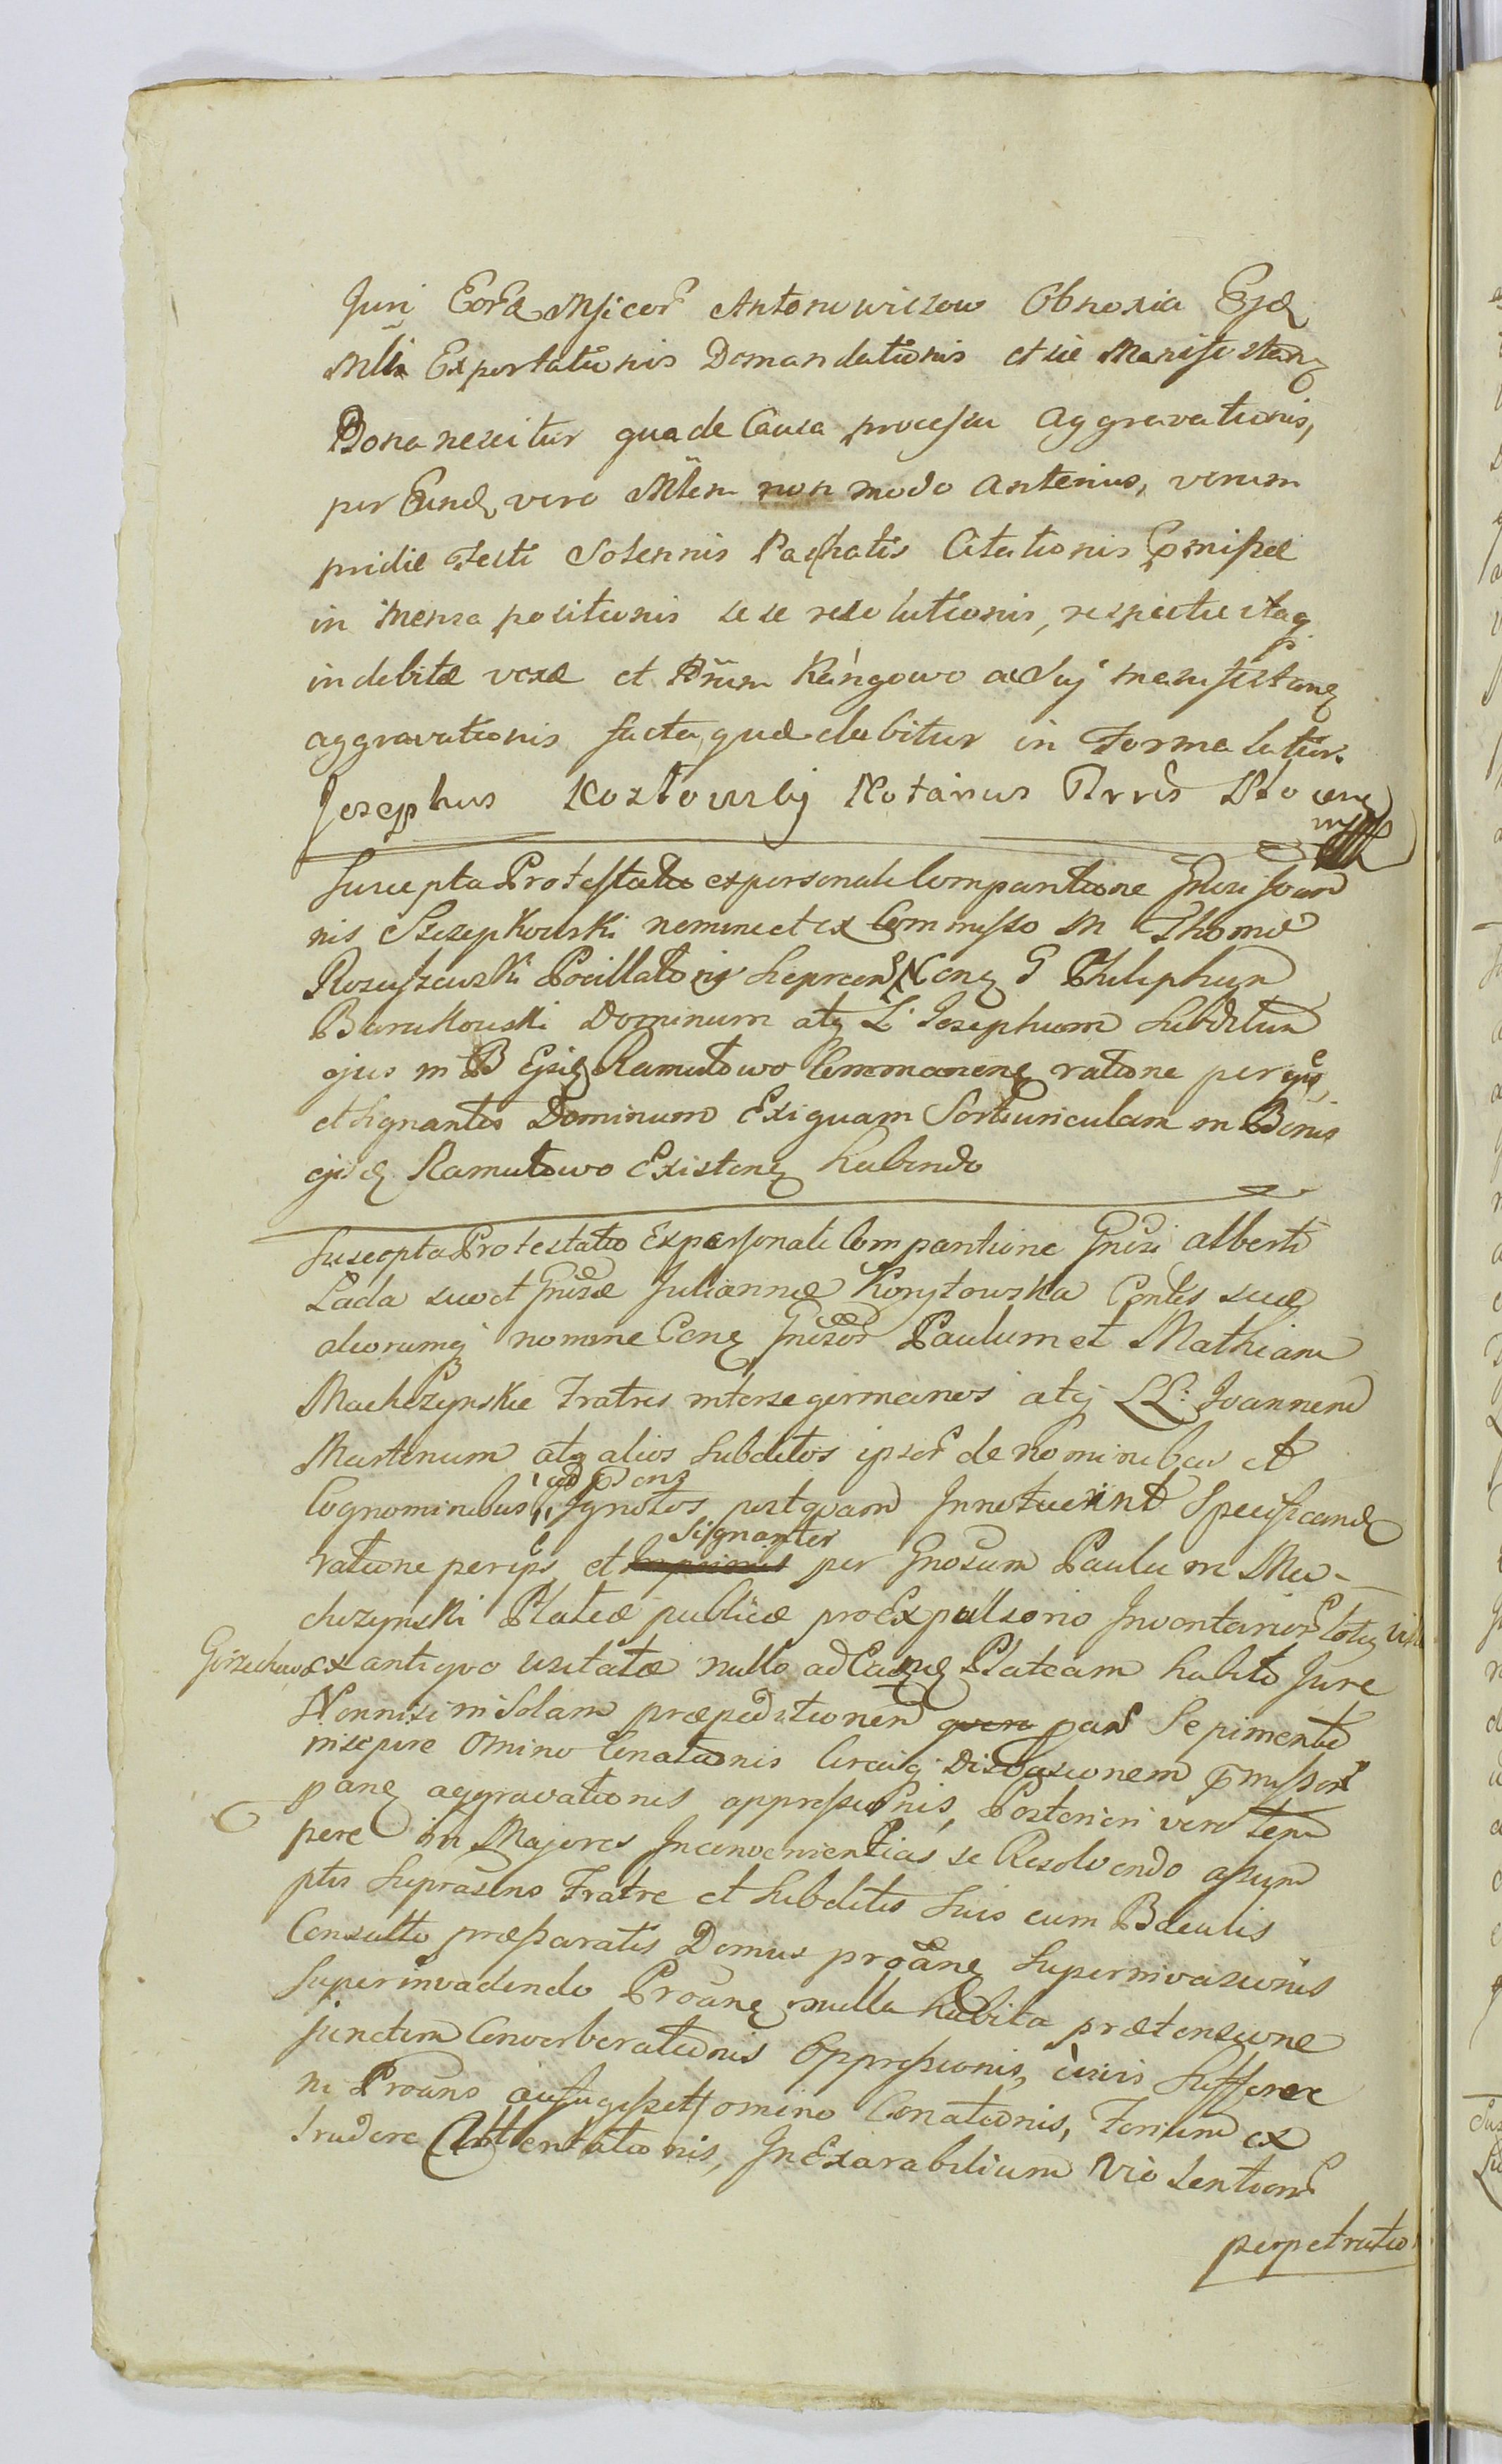 Juri Eord Mficor Antonowiczow Obnoxia Ejd
Mlis Exportationis Domandationis et sie Manifestanz
Bona nescitur qua de Causa processu aggravationis,
per Eund vero Mlem non modo anterius, verum
pridie Festi Solennis Paschatis Citationis Omissae
in mensa positionis se se resolutionis, respectu itaq
indebitae vexae et Pnum Kęngowo ac Suj manifestanz
aggravationis facta, quae dabitur in Forma latiori
Josephus Kozłowskj Notarius Trris Płocenz
mpp
Suscepta Protestatio ex personali Comparitione Gnosi Joan
nis Szczepkowski nomine et ex Commisso M Thomae
Rosciszewski Pocillatoris Sieprcen Conz G Philiphum
Barukowski Dominum atq L Josephum Subditum
ejus in B Ejsd Ramutowo Commanenz ratione per ips
et signanter Dominum Exiguam Sortiunculam in Bonis
ejusd Ramutowo Existenz habendo
Suscepta Protestatio Ex personali Comparitione Gnosi Alberti
Łada suo et Gnosae Julianae Korytowska Contis suae
aliorumq nomine Conz Gnosos Paulum et Mathiam
Machczynskie Fratres inter se germanos atq LL: Joannem
Martinum atq alios Subditos ipsor de Nominibus et
ad Psenz
Cognominibus Ignotos postquam Innotuerint Specificand
Signanter
ratione per ips, et imprimis per Gnosum Paulum Ma-
chczynski Plateae publicae pro Expulsorio Inventarior totiq Vil
Gorzechowo ex antiquo usitatae nullo ad Eandz Plateam habito Jure
Nonnisi in Solam praepeditionem quera pard Sepimento
insepire Omino Conationis Circaq Disvasionem Omissor
panz aggravationis oppressionis, Posteriori vero tem
pore in Majores Inconvenientias se Resolvendo assum
ptis Suprascris Fratre et Subditis Suis cum Baculis
Consulto praeparatis Domus proanz Superinvasionis
Superinvadendo Proanz nulla habita praetensione
junctim Converberationis Oppressionis, Sufferre
ni Proans aufugisset omino Conationis, Forium ex
trudere Attentationis, InExarabilium Violentiar
perpetratio